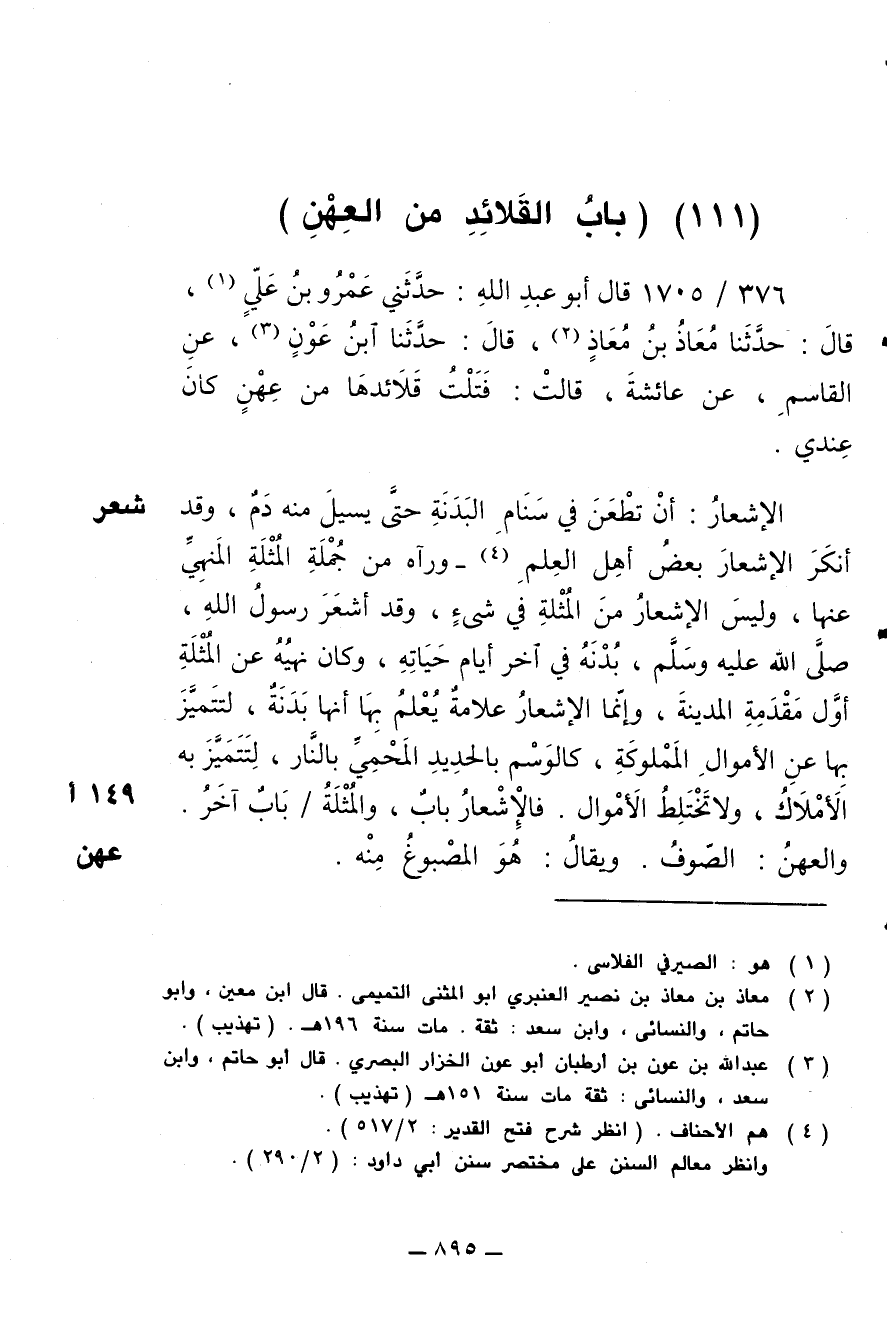 (١١١) ( بابُ القَلائِدِ من العِهْنِ )
٣٧٦ / ١٧٠٥ قال أبو عبدِ اللهِ : حدَّثَني عَمْرُو بنُ عَلّيٍ (١) ،
قالَ : حدَّثَنا مُعَاذُ بنُ مُعَاذٍ (٢) ، قالَ : حدَّثَنا ٱبنُ عَوْنٍ (٣) ، عنِ
القاسمِ ، عن عائشةَ ، قالتْ : فَتَلْتُ قَلَائدهَا من عِهْنٍ كانَ
عِندي .
الإشعارُ : أنْ تطْعَنَ في سَنَامِ البَدَنَةِ حتَّى يسيلَ منه دَمٌ ، وقد شعر
أنكَرَ الإشعارَ بعضُ أهلِ العِلمِ (٤) ـ ورآه من جُمْلَةِ المُثْلَةِ المَنهِيِّ
عنها ، وليسَ الإشعارُ منَ المُثْلةِ في شىءٍ ، وقد أشعَرَ رسولُ اللهِ ،
صلَّى الله عليه وسَلَّم ، بُدْنَهُ في آخر أيام حَيَاتِهِ ، وكان نهيُهُ عن المُثْلَةِ
أوَّل مَقْدَمِهِ المدينةَ ، وإنّما الإشعارُ علامةٌ يُعْلمُ بِهَا أنها بَدَنَةٌ ، لتتَميَّزَ
بِها عنِ الأموالِ المَمْلوكَةِ ، كالوَسْم بالحديدِ المَحْمِيِّ بالنَّار ، لِتَتَمَيَّزَ به
الَأمْلَاكُ ، ولا تَخْتَلِطُ الَأمْوال . فالْإِشْعارُ بابٌ ، والمُثْلَةُ / بَابٌ آخَرُ . ١٤٩ أ
والعهنُ : الصّوفُ . ويقالُ : هُوَ المَصْبوغُ مِنْه . عهن
(١) هو : الصيرفي الفلاسى .
(٢) معاذ بن معاذ بن نصير العنبري ابو المثنى التميمى . قال ابن معين ، وابو
حاتم ، والنسائى ، وابن سعد : ثقة . مات سنة ١٩٦هـ . ( تهذيب ) .
(٣) عبدالله بن عون بن أرطبان أبو عون الخزار البصري . قال أبو حاتم ، وابن
سعد ، والنسائى : ثقة مات سنة ١٥١هـ ( تهذيب ) .
(٤) هم الأحناف . ( انظر شرح فتح القدير : ٥١٧/٢ ) .
وانظر معالم السنن على مختصر سنن أبي داود : ( ٢٩٠/٢ ) .
ـ ٨٩٥ ـ